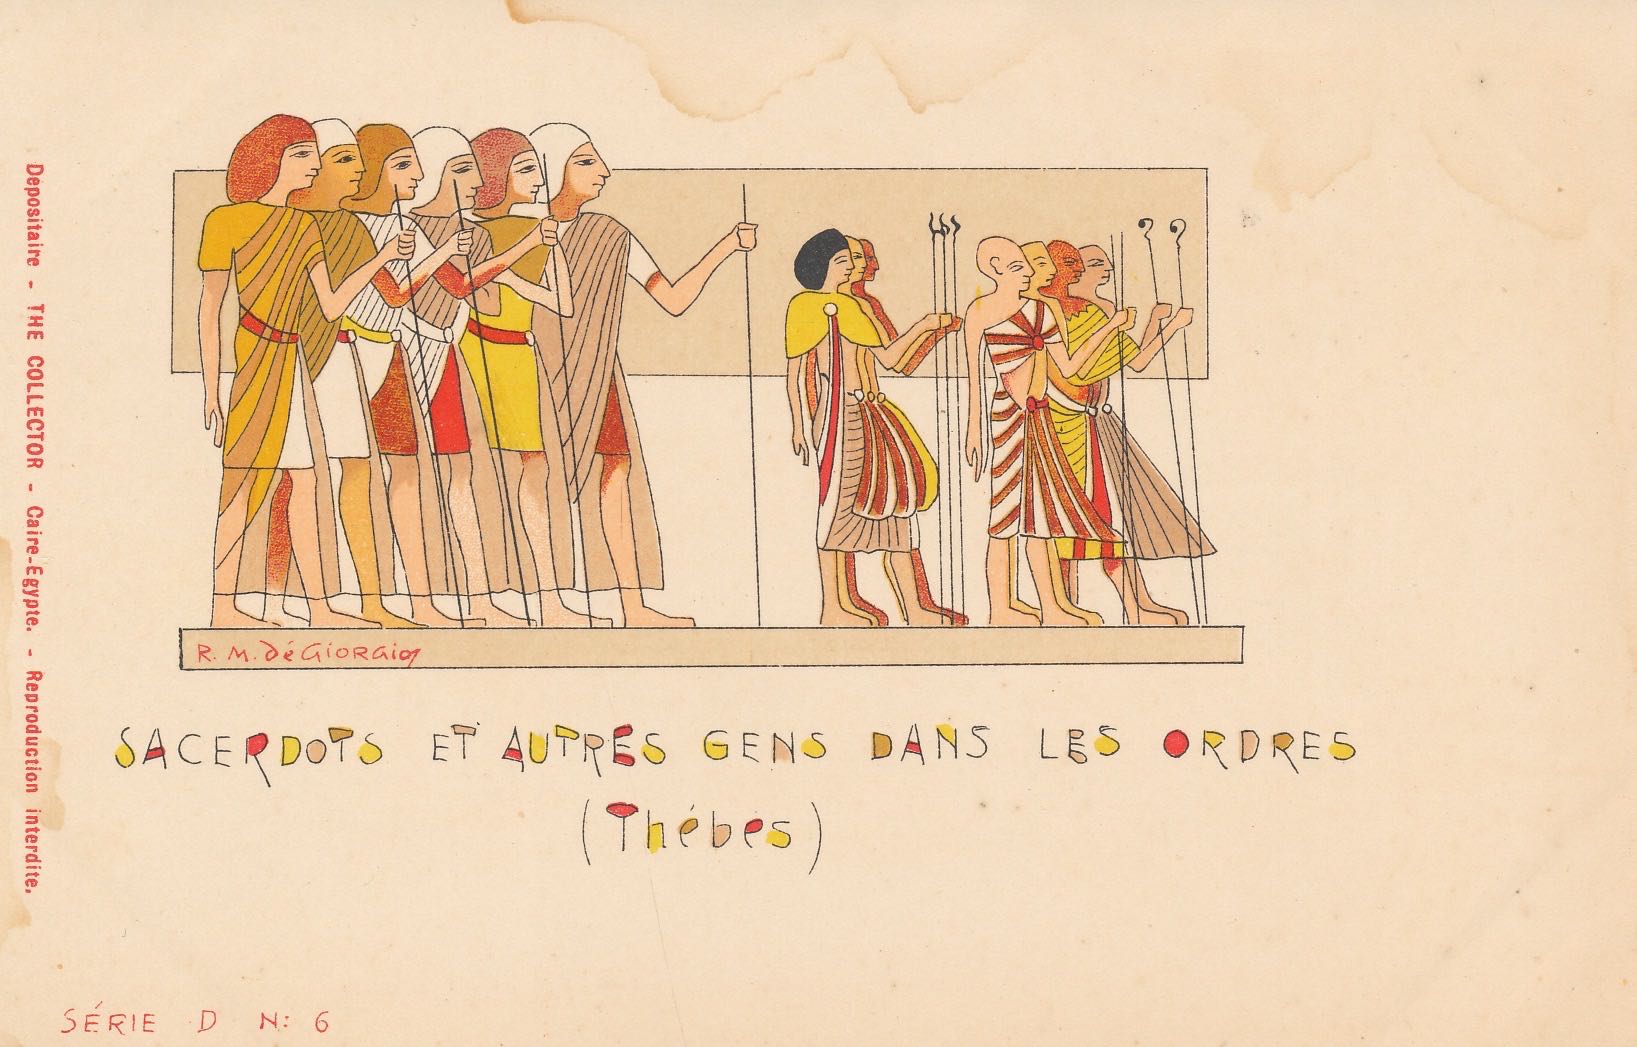 Depositaire - THE COLLECTOR - Caire-Egypte. - Reproduction interdite.
R. M. déGiorgio
SACERDOTS ET AUTRES GENS DANS LES ORDRES
(Thébes)
SÉRIE D N: 6